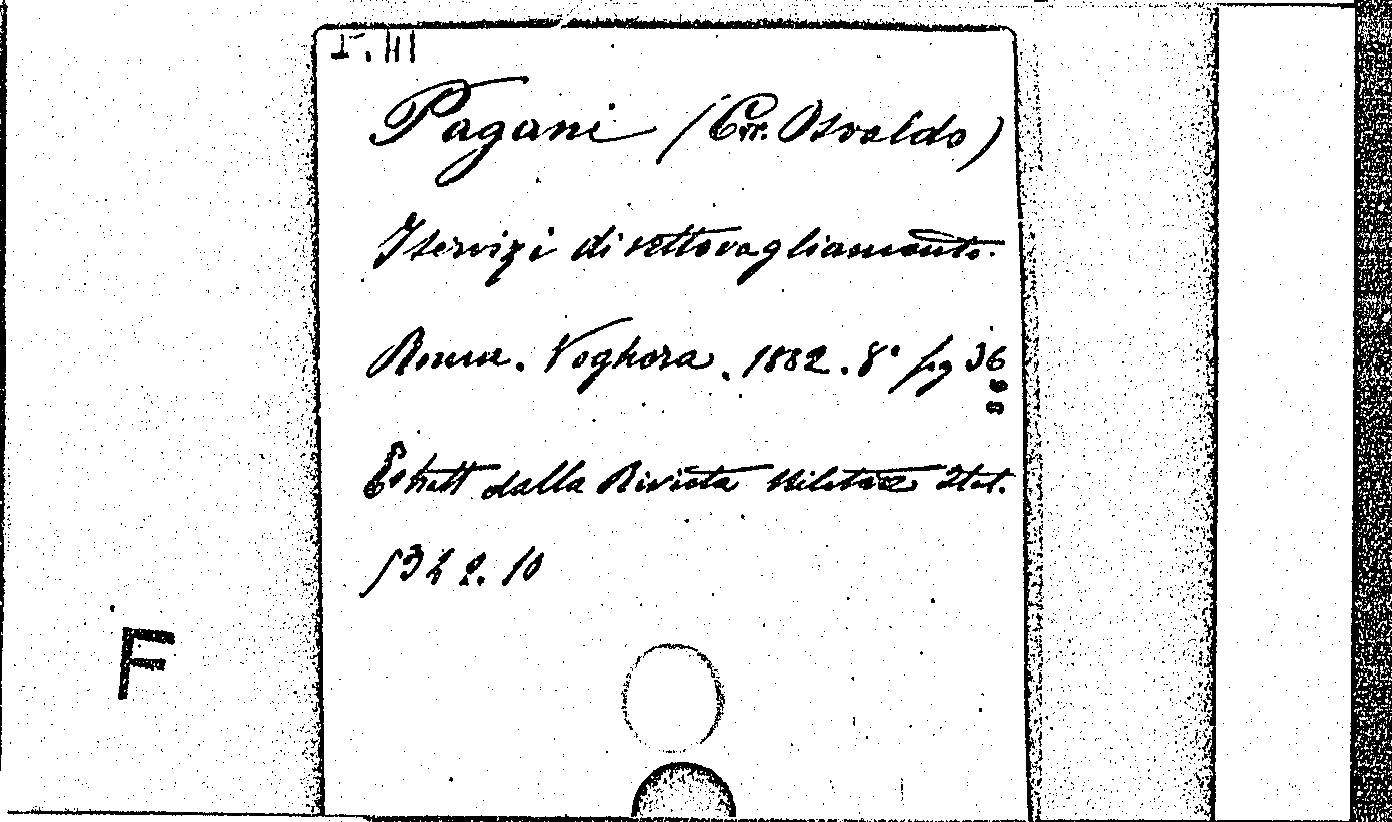 I. III
Pagani (Cav. Osvaldo)
I servizi di vettovagliamento.
Roma. Voghera. 1882. 8° pag 36
Estratt dalla Rivista Militare Ital.
1342.10
F